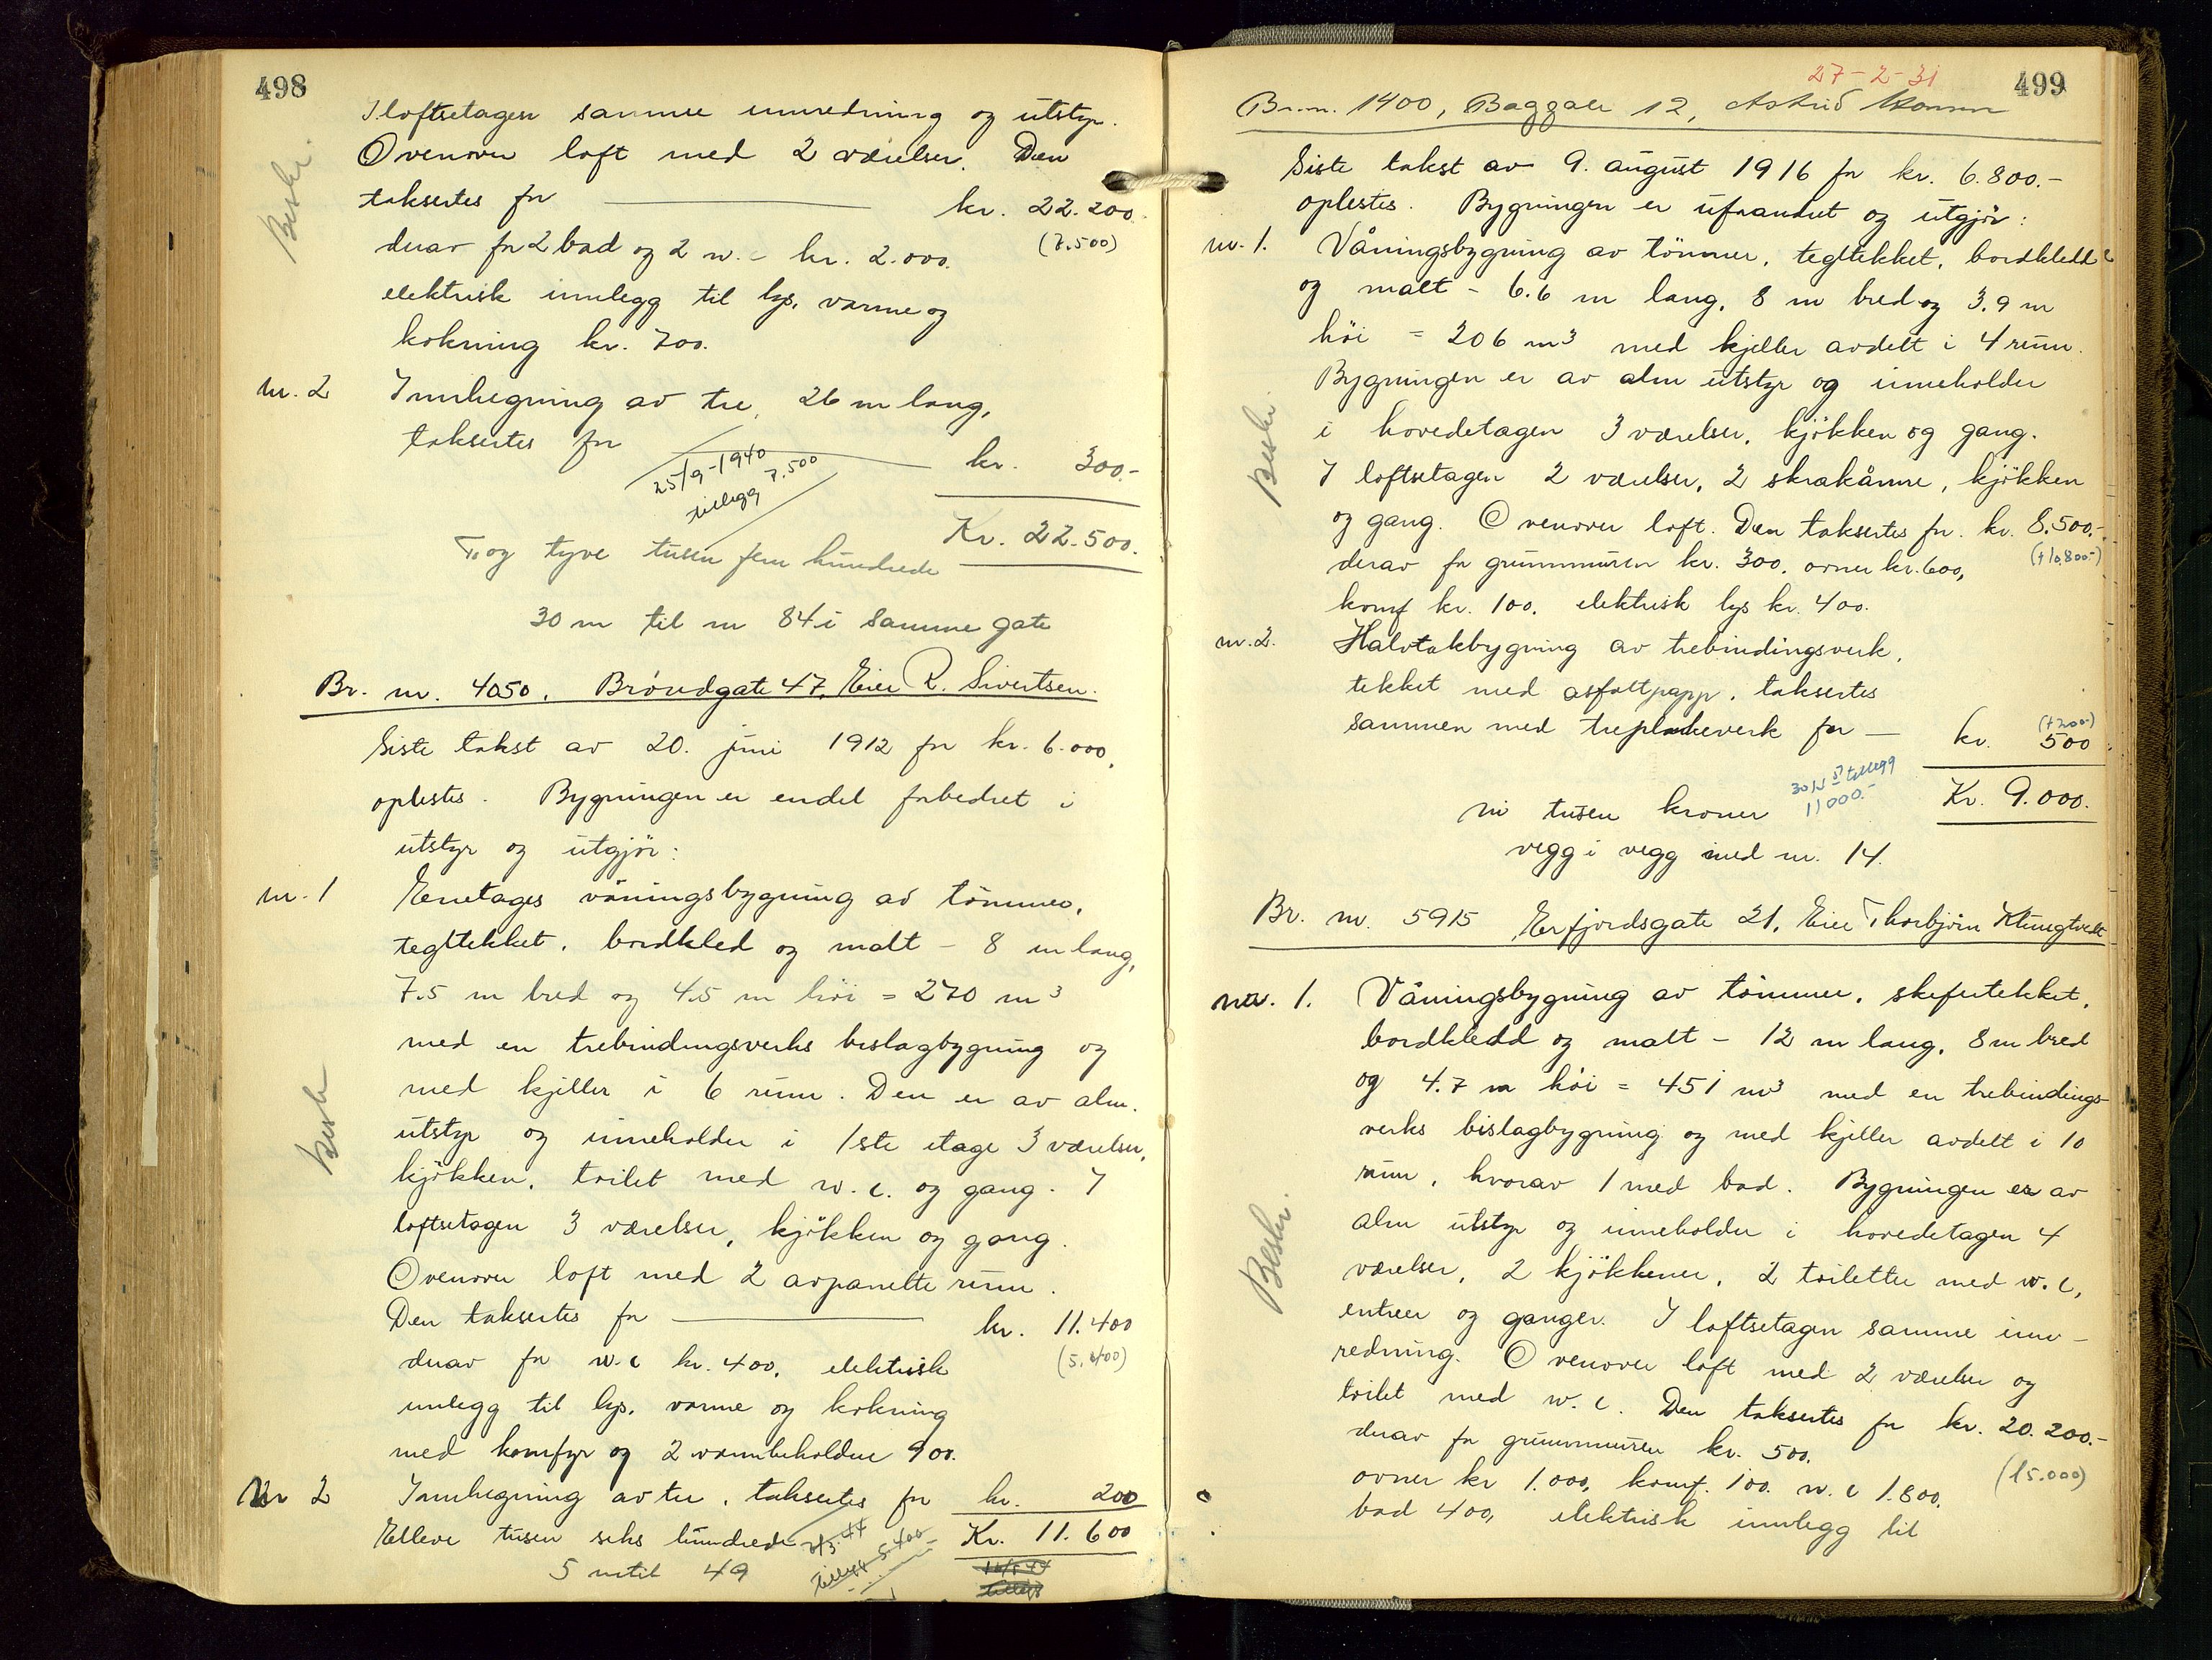 498
I loftsetagen samme innredning og utstyr.
Ovenover loft med 2 værelser. Den
taksertes for kr. 22.200.
derav for 2 bad og 2 w.c kr. 2.000. (7.500)
elektrisk innlegg til lys, varme og
kokning kr. 700.
Beskr.
nr. 2 Innhegning av tre, 26 m lang,
taksertes for kr. 300.-
25/9-1940
tillegg 7.500
Kr. 22.500.
To og tyve tusen fem hundrede
30 m til nr 84 i samme gate
Br. nr. 4050. Brøndgate 47, Eier R. Sivertsen.
Siste takst av 20. juni 1912 for kr. 6.000,
oplestes. Bygningen er endel forbedret i
utstyr og utgjör:
nr. 1 Enetages våningsbygning av tömmer,
tegltekket, bordkled og malt - 8 m lang,
7.5 m bred og 4.5 m höi = 270 m³
med en trebindingsverks bislagbygning og
med kjeller i 6 rum. Den er av alm.
utstyr og inneholder i 1ste etage 3 værelser,
kjökken, toilet med w.c. og gang. I
loftsetagen 3 værelser, kjökken og gang.
Ovenover loft med 2 avpanelte rum.
Beskr
Den taksertes for kr. 11.400
derav for w.c kr. 400, elektrisk (5.400)
innlegg til lys, varme og kokning
med komfyr og 2 varmtbeholdere 900.
Nr 2 Innhegning av tre, taksertes for kr. 200
Elleve tusen seks hundrede Kr. 11.600
tillegg 5.400-
5 m til 49
27-2-31
499
Br.nr. 1400, Baggate 12, Astrid
Siste takst av 9. august 1916 for kr. 6.800.-
oplestes. Bygningen er uforandret og utgjör:
nr. 1. Våningsbygning av tömmer, tegltekket, bordkledd
og malt - 6.6 m lang, 8 m bred og 3.9 m
höi = 206 m³ med kjeller avdelt i 4 rum.
Bygningen er av alm utstyr og inneholder
i hovedetagen 3 værelser, kjökken og gang.
I loftsetagen 2 værelser, 2 skråkåmre, kjökken
og gang. Ovenover loft. Den taksertes for kr. 8.500,-
derav for grunnmuren kr. 300, ovner kr. 600, (+10.800-)
komf kr. 100, elektrisk lys kr. 400.
Beskr.
nr. 2. Halvtakbygning av trebindingsverk,
tekket med asfaltpapp, taksertes
sammen med treplankeverk for kr. 500
(+200-)
30/1 51 tillegg
11000.-
ni tusen kroner Kr. 9.000.
vegg i vegg med nr. 14.
Br. nr. 5915 Erfjordsgate 21, Eier Thorbjørn Klungtvedt
nr. 1. Våningsbygning av tömmer, skifertekket,
bordkledd og malt - 12 m lang, 8 m bred
og 4.7 m höi = 451 m³ med en trebindings-
verks bislagbygning og med kjeller avdelt i 10
rum, hvorav 1 med bad. Bygningen er av
alm utstyr og inneholder i hovedetagen 4
værelser, 2 kjökkener, 2 toiletter med w.c,
entreer og ganger. I loftsetagen samme inn-
redning. Ovenover loft med 2 værelser og
toilet med w.c. Den taksertes for kr. 20.200.-
derav for grunnmuren kr. 500, (15.000)
ovner kr 1.000, komf. 100. w.c 1.800,
bad 400, elektrisk innlegg til
Beskr.